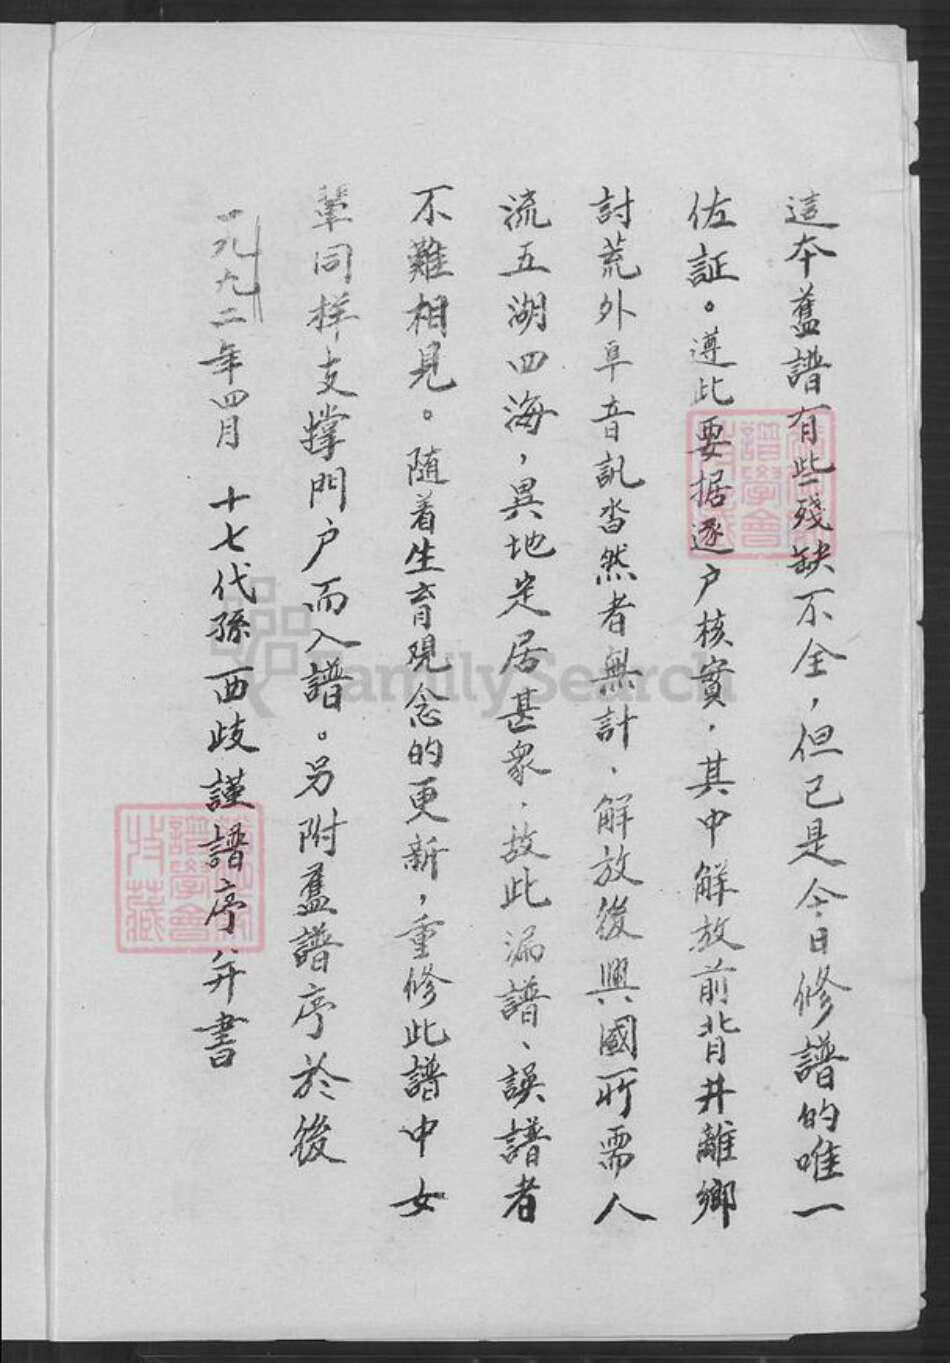 這本舊譜有些殘缺不全，但已是今日修譜的唯一
佐証。遵此要据逐户核實，其中解放前背井離鄉
討荒外阜音訊杳然者無計、解放後興國所需人
流五湖四海，異地定居甚衆，故此漏譜、誤譜者
不難相見。随着生育現念的更新，重修此譜中女
輩同样支撑門户而入譜。另附舊譜序於後
一九九二年四月 十七代孫西歧謹譜序并書
譜學會
收藏
FamilySearch